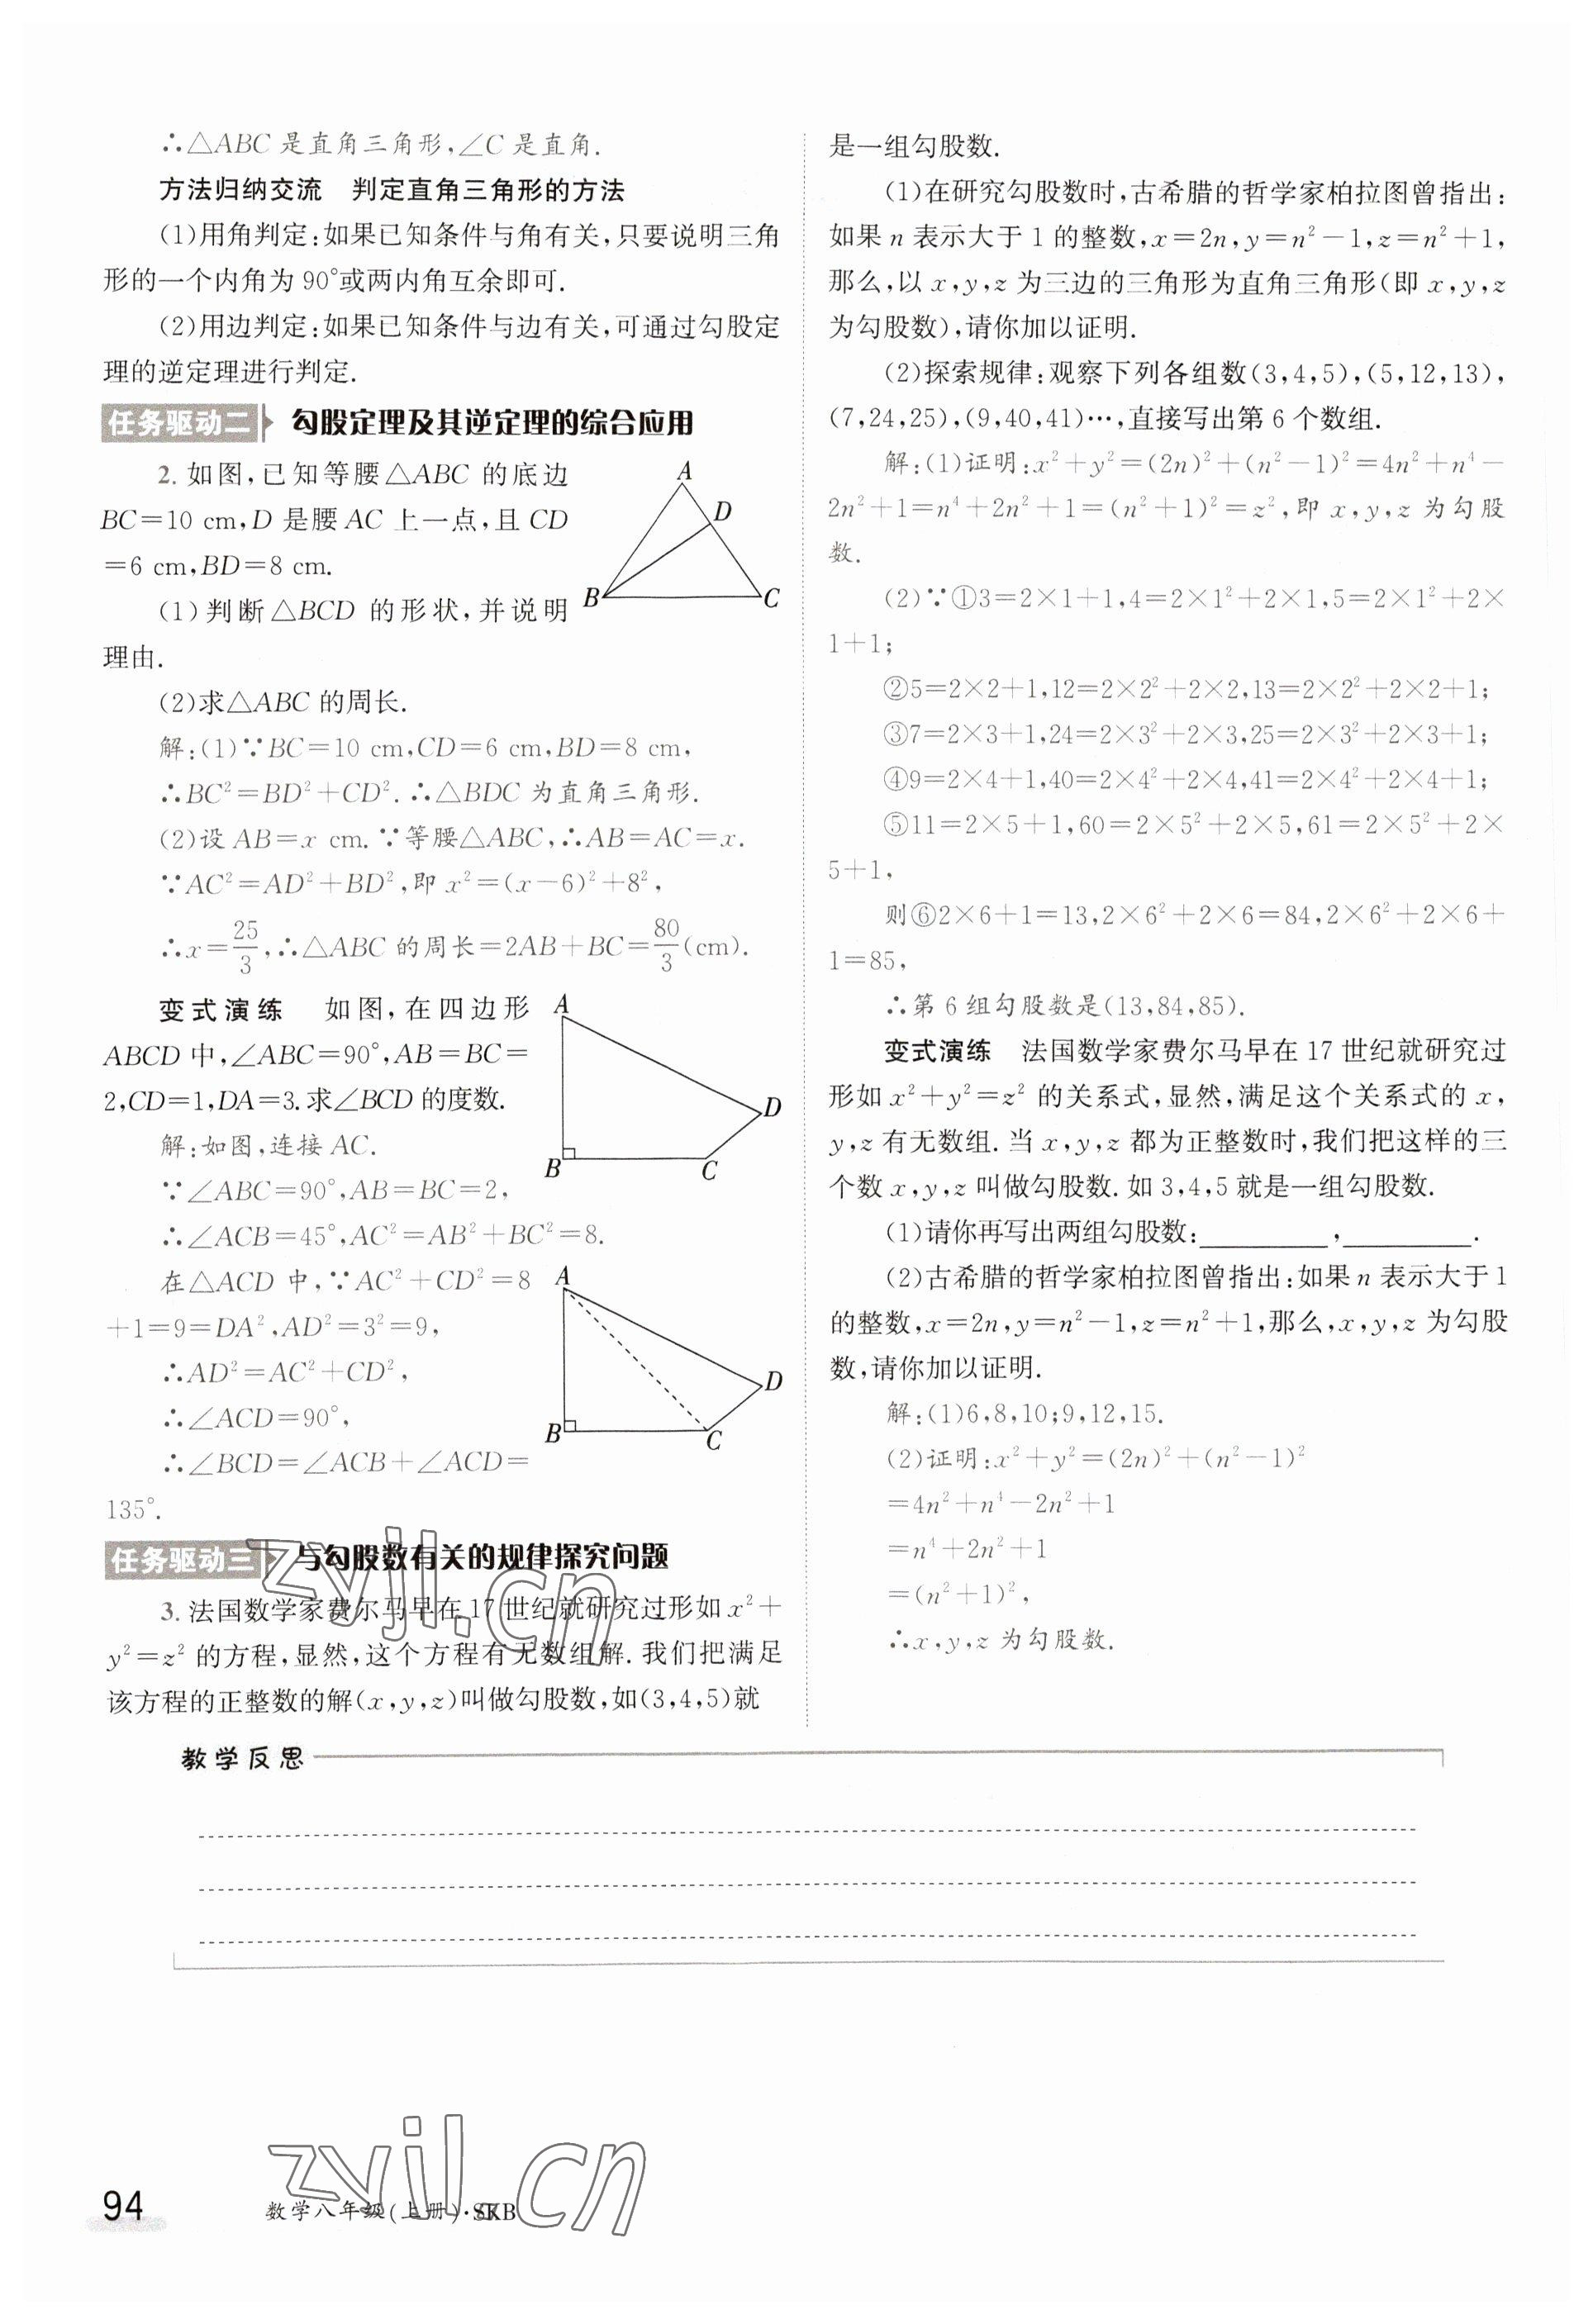 ∴△ABC 是直角三角形,∠C 是直角.
方法归纳交流　判定直角三角形的方法
(1)用角判定:如果已知条件与角有关,只要说明三角
形的一个内角为 90°或两内角互余即可.
(2)用边判定:如果已知条件与边有关,可通过勾股定
理的逆定理进行判定.
任务驱动二　勾股定理及其逆定理的综合应用
2. 如图,已知等腰△ABC 的底边
BC=10 cm,D 是腰 AC 上一点,且 CD
=6 cm,BD=8 cm.
(1)判断△BCD 的形状,并说明
理由.
(2)求△ABC 的周长.
A
D
B
C
解:(1)∵BC=10 cm,CD=6 cm,BD=8 cm,
∴BC²=BD²+CD². ∴△BDC 为直角三角形.
(2)设 AB=x cm. ∵等腰△ABC,∴AB=AC=x.
∵AC²=AD²+BD²,即 x²=(x-6)²+8²,
∴x=25/3,∴△ABC 的周长=2AB+BC=80/3(cm).
变式演练　如图,在四边形
ABCD 中,∠ABC=90°,AB=BC=
2,CD=1,DA=3.求∠BCD 的度数.
A
D
B
C
解:如图,连接 AC.
∵∠ABC=90°,AB=BC=2,
∴∠ACB=45°,AC²=AB²+BC²=8.
在△ACD 中,∵AC²+CD²=8
+1=9=DA²,AD²=3²=9,
∴AD²=AC²+CD²,
∴∠ACD=90°,
∴∠BCD=∠ACB+∠ACD=
135°.
A
D
B
C
任务驱动三　与勾股数有关的规律探究问题
3. 法国数学家费尔马早在 17 世纪就研究过形如 x²+
y²=z² 的方程,显然,这个方程有无数组解. 我们把满足
该方程的正整数的解(x,y,z)叫做勾股数,如(3,4,5)就
是一组勾股数.
(1)在研究勾股数时,古希腊的哲学家柏拉图曾指出:
如果 n 表示大于 1 的整数,x=2n,y=n²-1,z=n²+1,
那么,以 x,y,z 为三边的三角形为直角三角形(即 x,y,z
为勾股数),请你加以证明.
(2)探索规律:观察下列各组数(3,4,5),(5,12,13),
(7,24,25),(9,40,41)…,直接写出第 6 个数组.
解:(1)证明:x²+y²=(2n)²+(n²-1)²=4n²+n⁴-
2n²+1=n⁴+2n²+1=(n²+1)²=z²,即 x,y,z 为勾股
数.
(2)∵①3=2×1+1,4=2×1²+2×1,5=2×1²+2×
1+1;
②5=2×2+1,12=2×2²+2×2,13=2×2²+2×2+1;
③7=2×3+1,24=2×3²+2×3,25=2×3²+2×3+1;
④9=2×4+1,40=2×4²+2×4,41=2×4²+2×4+1;
⑤11=2×5+1,60=2×5²+2×5,61=2×5²+2×
5+1,
则⑥2×6+1=13,2×6²+2×6=84,2×6²+2×6+
1=85,
∴第 6 组勾股数是(13,84,85).
变式演练　法国数学家费尔马早在 17 世纪就研究过
形如 x²+y²=z² 的关系式,显然,满足这个关系式的 x,
y,z 有无数组. 当 x,y,z 都为正整数时,我们把这样的三
个数 x,y,z 叫做勾股数. 如 3,4,5 就是一组勾股数.
(1)请你再写出两组勾股数:________,________.
(2)古希腊的哲学家柏拉图曾指出:如果 n 表示大于 1
的整数,x=2n,y=n²-1,z=n²+1,那么,x,y,z 为勾股
数,请你加以证明.
解:(1)6,8,10;9,12,15.
(2)证明:x²+y²=(2n)²+(n²-1)²
=4n²+n⁴-2n²+1
=n⁴+2n²+1
=(n²+1)²,
∴x,y,z 为勾股数.
zyjl.cn
教学反思
zyjl.cn
94
数学八年级(上册)·SKB